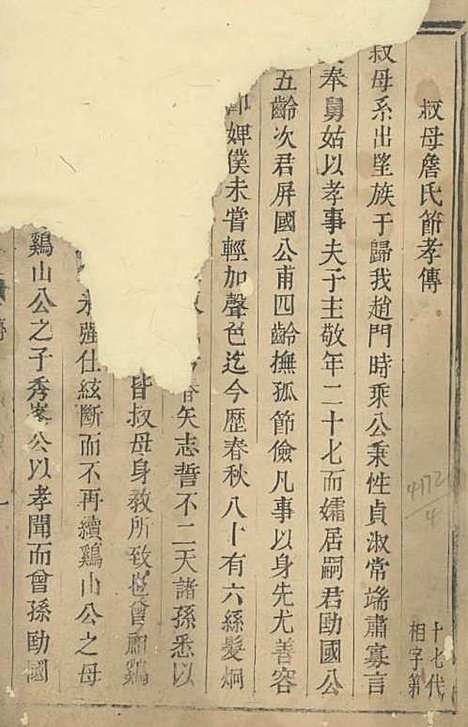 叔母詹氏節孝傳
十七代
相字第
4172/4
叔母系出望族于歸我趙門時乘公秉性貞淑常端肅寡言
奉舅姑以孝事夫子主敬年二十七而孀居嗣君勱國公
五齡次君屏國公甫四齡撫孤節儉凡事以身先尤善容
婢僕未嘗輕加聲色迄今歷春秋八十有六絲髮炯
矢志誓不二天諸孫悉以
皆叔母身教所致從曾祖鷄
强仕絃斷而不再續鷄山公之母
鷄山公之子秀峯公以孝聞而曾孫勱國